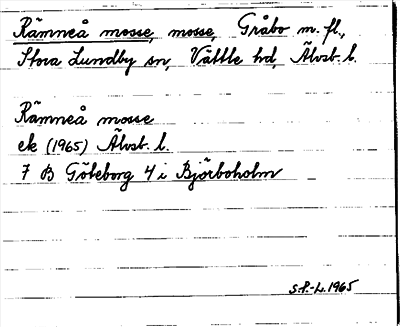 Rämneå mosse, mosse, Gråbo m. fl.,
Stora Lundby sn, Vättle hd, Älvsb. l.
Rämneå mosse
ek (1965) Älvsb. l.
7 B Göteborg 4 i Björboholm
S.P.-L. 1965